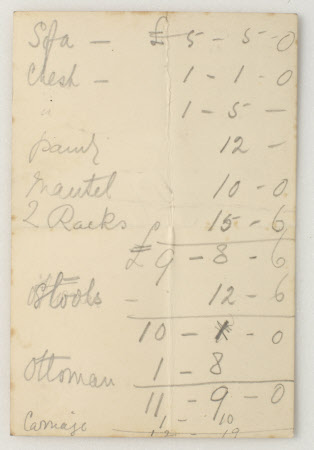 Sofa — £ 5 - 5 - 0
Chest — 1 - 1 - 0
" 1 - 5 —
paint 12 -
Mantel 10 - 0
2 Racks 15 - 6
£9 - 8 - 6
Stools - 12 - 6
10 - 1 - 0
Ottoman 1 - 8
11 - 9 - 0
Carriage 1 - 10